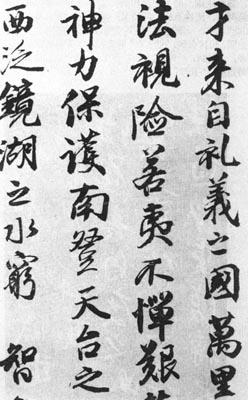 才来自礼義之國萬里
法視險若夷不憚艱
神力保護南登天台之
西泛鏡湖之水窮智